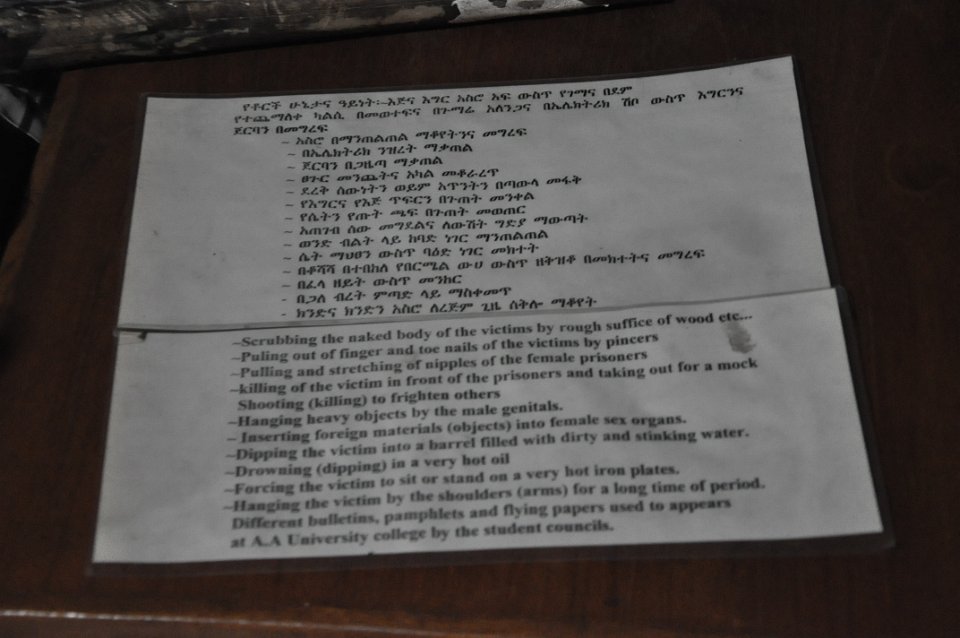 የቶርች ሁኔታና ዓይነት፡-እጅና እግር አስሮ አፍ ውስጥ የገማና በደም
የተጨማለቀ ካልሲ በመወተፍና በጉማሬ አለንጋና በኤሌክትሪክ ሽቦ ውስጥ እግርንና
ጀርባን በመግረፍ
~ አስሮ በማንጠልጠል ማቆየትንና መግረፍ
~ በኤሌክትሪክ ንዝረት ማቃጠል
~ ጀርባን ቢጋዜጣ ማቃጠል
~ ፀጉር መንጨትና አካል መቆራረጥ
~ ደረቅ ሰውነትን ወይም አጥንትን በጣውላ መፋቅ
~ የእግርና የእጅ ጥፍርን በጉጠት መንቀል
~ የሴትን የጡት ጫፍ በጉጠት መወጠር
~ አጠገብ ሰው መግደልና ለውሸት ግድያ ማውጣት
~ ወንድ ብልት ላይ ከባድ ነገር ማንጠልጠል
~ ሴት ማህፀን ውስጥ ባዕድ ነገር መክተት
~ በቆሻሻ በተበከለ የበርሜል ውሀ ውስጥ ዘቅዝቆ በመክተትና መግረፍ
~ በፈላ ዘይት ውስጥ መንከር
- ቢጋለ ብረት ምጣድ ላይ ማስቀመጥ
- ክንድና ክንድን አስሮ ለረጅም ጊዜ ሰቅሎ ማቆየት
~Scrubbing the naked body of the victims by rough suffice of wood etc...
~Puling out of finger and toe nails of the victims by pincers
~Pulling and stretching of nipples of the female prisoners
~killing of the victim in front of the prisoners and taking out for a mock
Shooting (killing) to frighten others
~Hanging heavy objects by the male genitals.
~ Inserting foreign materials (objects) into female sex organs.
~Dipping the victim into a barrel filled with dirty and stinking water.
~Drowning (dipping) in a very hot oil
~Forcing the victim to sit or stand on a very hot iron plates.
~Hanging the victim by the shoulders (arms) for a long time of period.
Different bulletins, pamphlets and flying papers used to appears
at A.A University college by the student councils.